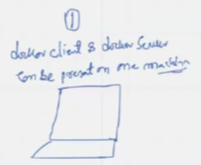 1
docker client & docker server
can be present on one machine